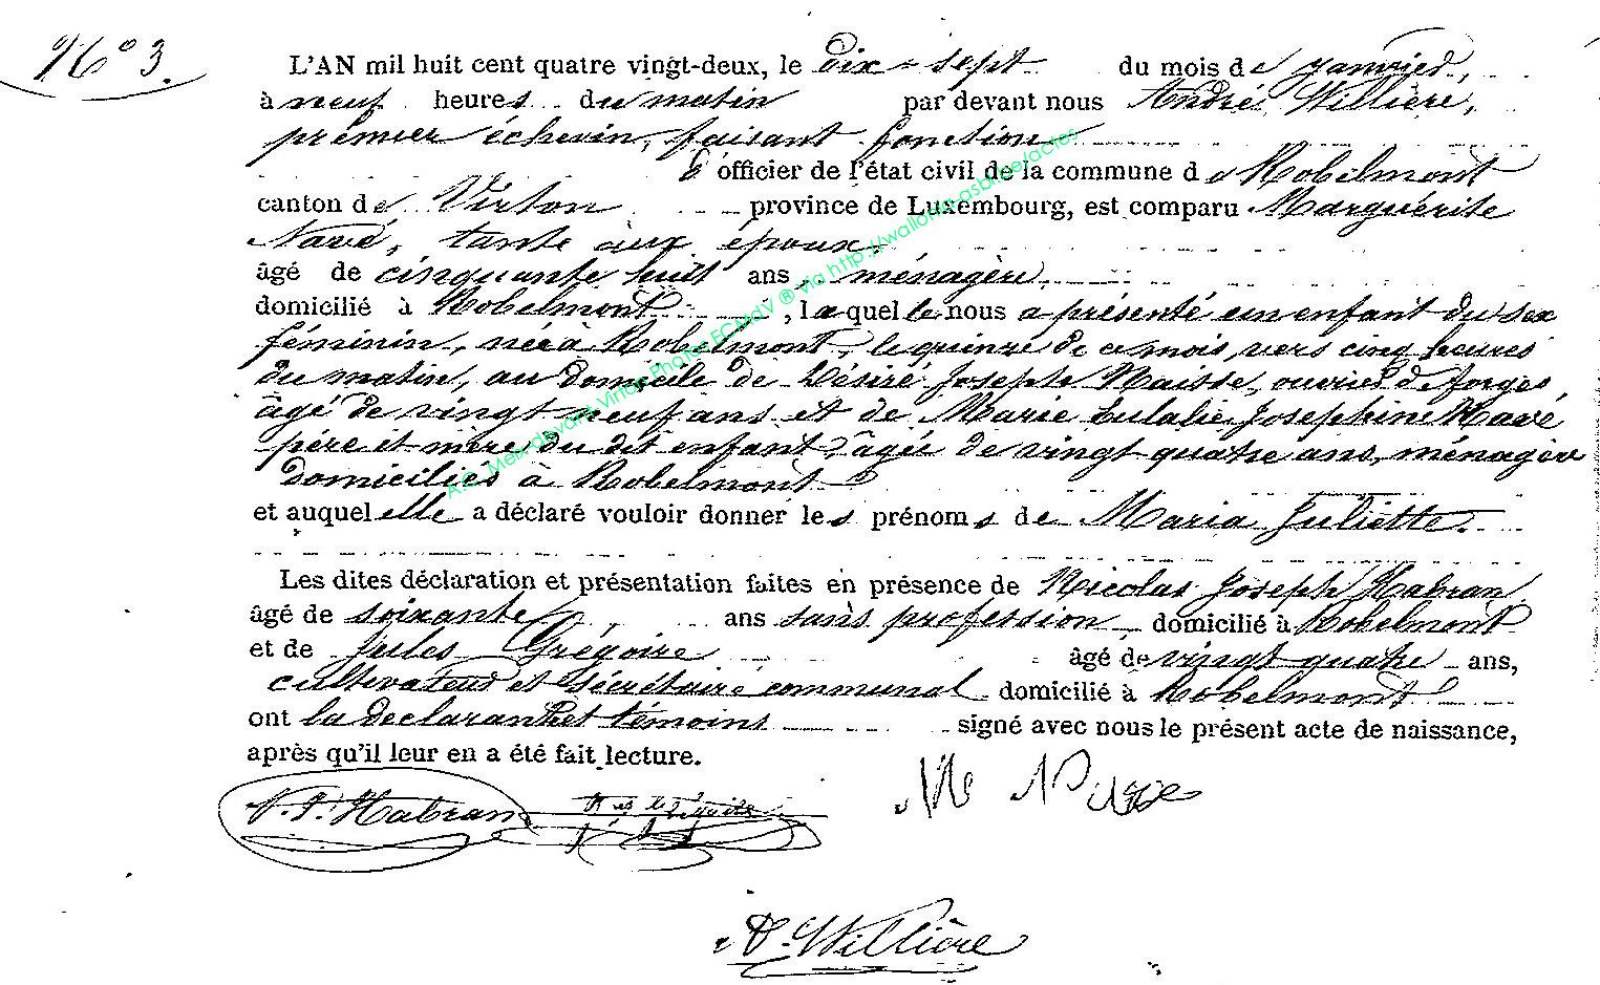 N° 3.
L'AN mil huit cent quatre vingt-deux, le Dix-sept du mois de janvier,
à neuf heures du matin par devant nous André Willière,
prémier échevin, faisant fonction
d'officier de l'état civil de la commune de Robelmont
canton de Virton province de Luxembourg, est comparu Marguérite
Navé, tante aux époux,
âgé de cinquante huit ans ménagère,
domicilié à Robelmont, laquelle nous a présenté un enfant du sex
féminin, née à Robelmont, le quinze de ce mois, vers cinq heures
du matin, au domicile de Désiré Joseph Maisse, ouvrier de forges,
âgé de vingt neuf ans et de Marie Eulalie Josephine Navé
père et mère du dit enfant, âgée de vingt quatre ans, ménagère
domiciliés à Robelmont
et auquel elle a déclaré vouloir donner les prénoms de Maria Juliette.
Les dites déclaration et présentation faites en présence de Nicolas Joseph Habran
âgé de soixante ans sans profession, domicilié à Robelmont
et de Jules Grégoire âgé de vingt quatre ans,
cultivateur et sécrétaire communal domicilié à Robelmont
ont la declarante et témoins signé avec nous le présent acte de naissance,
après qu'il leur en a été fait lecture.
N. J. Habran
A. Willière
via http://wallonia-asbl.be/actes